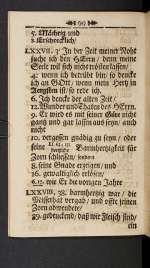 ❧ (90) ❧
5. Mächtig und
6. Erschrecklich;
LXXVII. 3. In der Zeit meiner Noht
suche ich den HErrn; denn meine
Seele will sich nicht trösten lassen;
4. wenn ich betrübt bin, so dencke
ich an GOtt; wenn mein Hertz in
Aengsten ist, so rede ich.
6. Ich dencke der alten Zeit,
12. Wunder und Thaten des HErrn.
9. Er wird es mit seiner Güte nicht
gantz und gar lassen aus seyn, auch
nicht
10. vergessen gnädig zu seyn, oder
seine Barmhertzigkeit für
Zorn schliessen, sondern
8. seine Gnade erzeigen, und
16. gewaltiglich erlösen,
6. wie Er die vorigen Jahre
LXXVIII. 38. barmhertzig war, die
Missethat vergab, und offte seinen
Zorn abwendete,
39. gedenckend, daß wir Fleisch sind,
ein